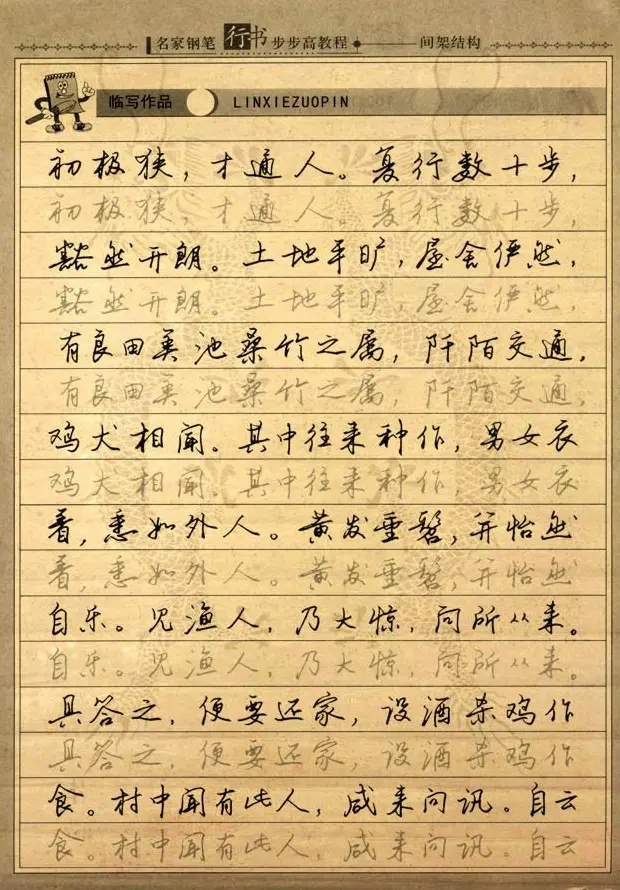 名家钢笔 行书 步步高教程 间架结构
临写作品 LINXIEZUOPIN
初极狭，才通人。复行数十步，
初极狭，才通人。复行数十步，
豁然开朗。土地平旷，屋舍俨然，
豁然开朗。土地平旷，屋舍俨然，
有良田美池桑竹之属，阡陌交通，
有良田美池桑竹之属，阡陌交通，
鸡犬相闻。其中往来种作，男女衣
鸡犬相闻。其中往来种作，男女衣
着，悉如外人。黄发垂髫，并怡然
着，悉如外人。黄发垂髫，并怡然
自乐。见渔人，乃大惊，问所从来。
自乐。见渔人，乃大惊，问所从来。
具答之，便要还家，设酒杀鸡作
具答之，便要还家，设酒杀鸡作
食。村中闻有此人，咸来问讯。自云
食。村中闻有此人，咸来问讯。自云